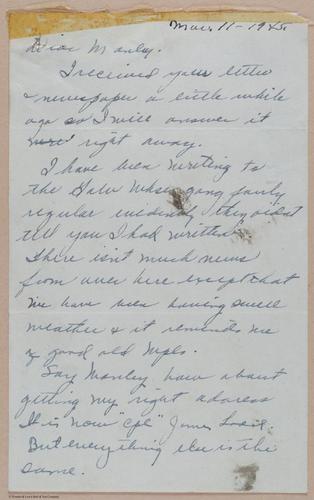 Mar. 11 - 1945
Dear Manley.
I received your letter
& newspaper a little while
ago so I will answer it
right away.
I have been writing to
the gang fairly
regular evidently they didnt
tell you I had written.
There isn't much news
from over here except that
we have been having swell
weather & it reminds me
of good old Mpls.
Say Manley, how about
getting my right address
It is now "Cpl" James
But everything else is the
same.